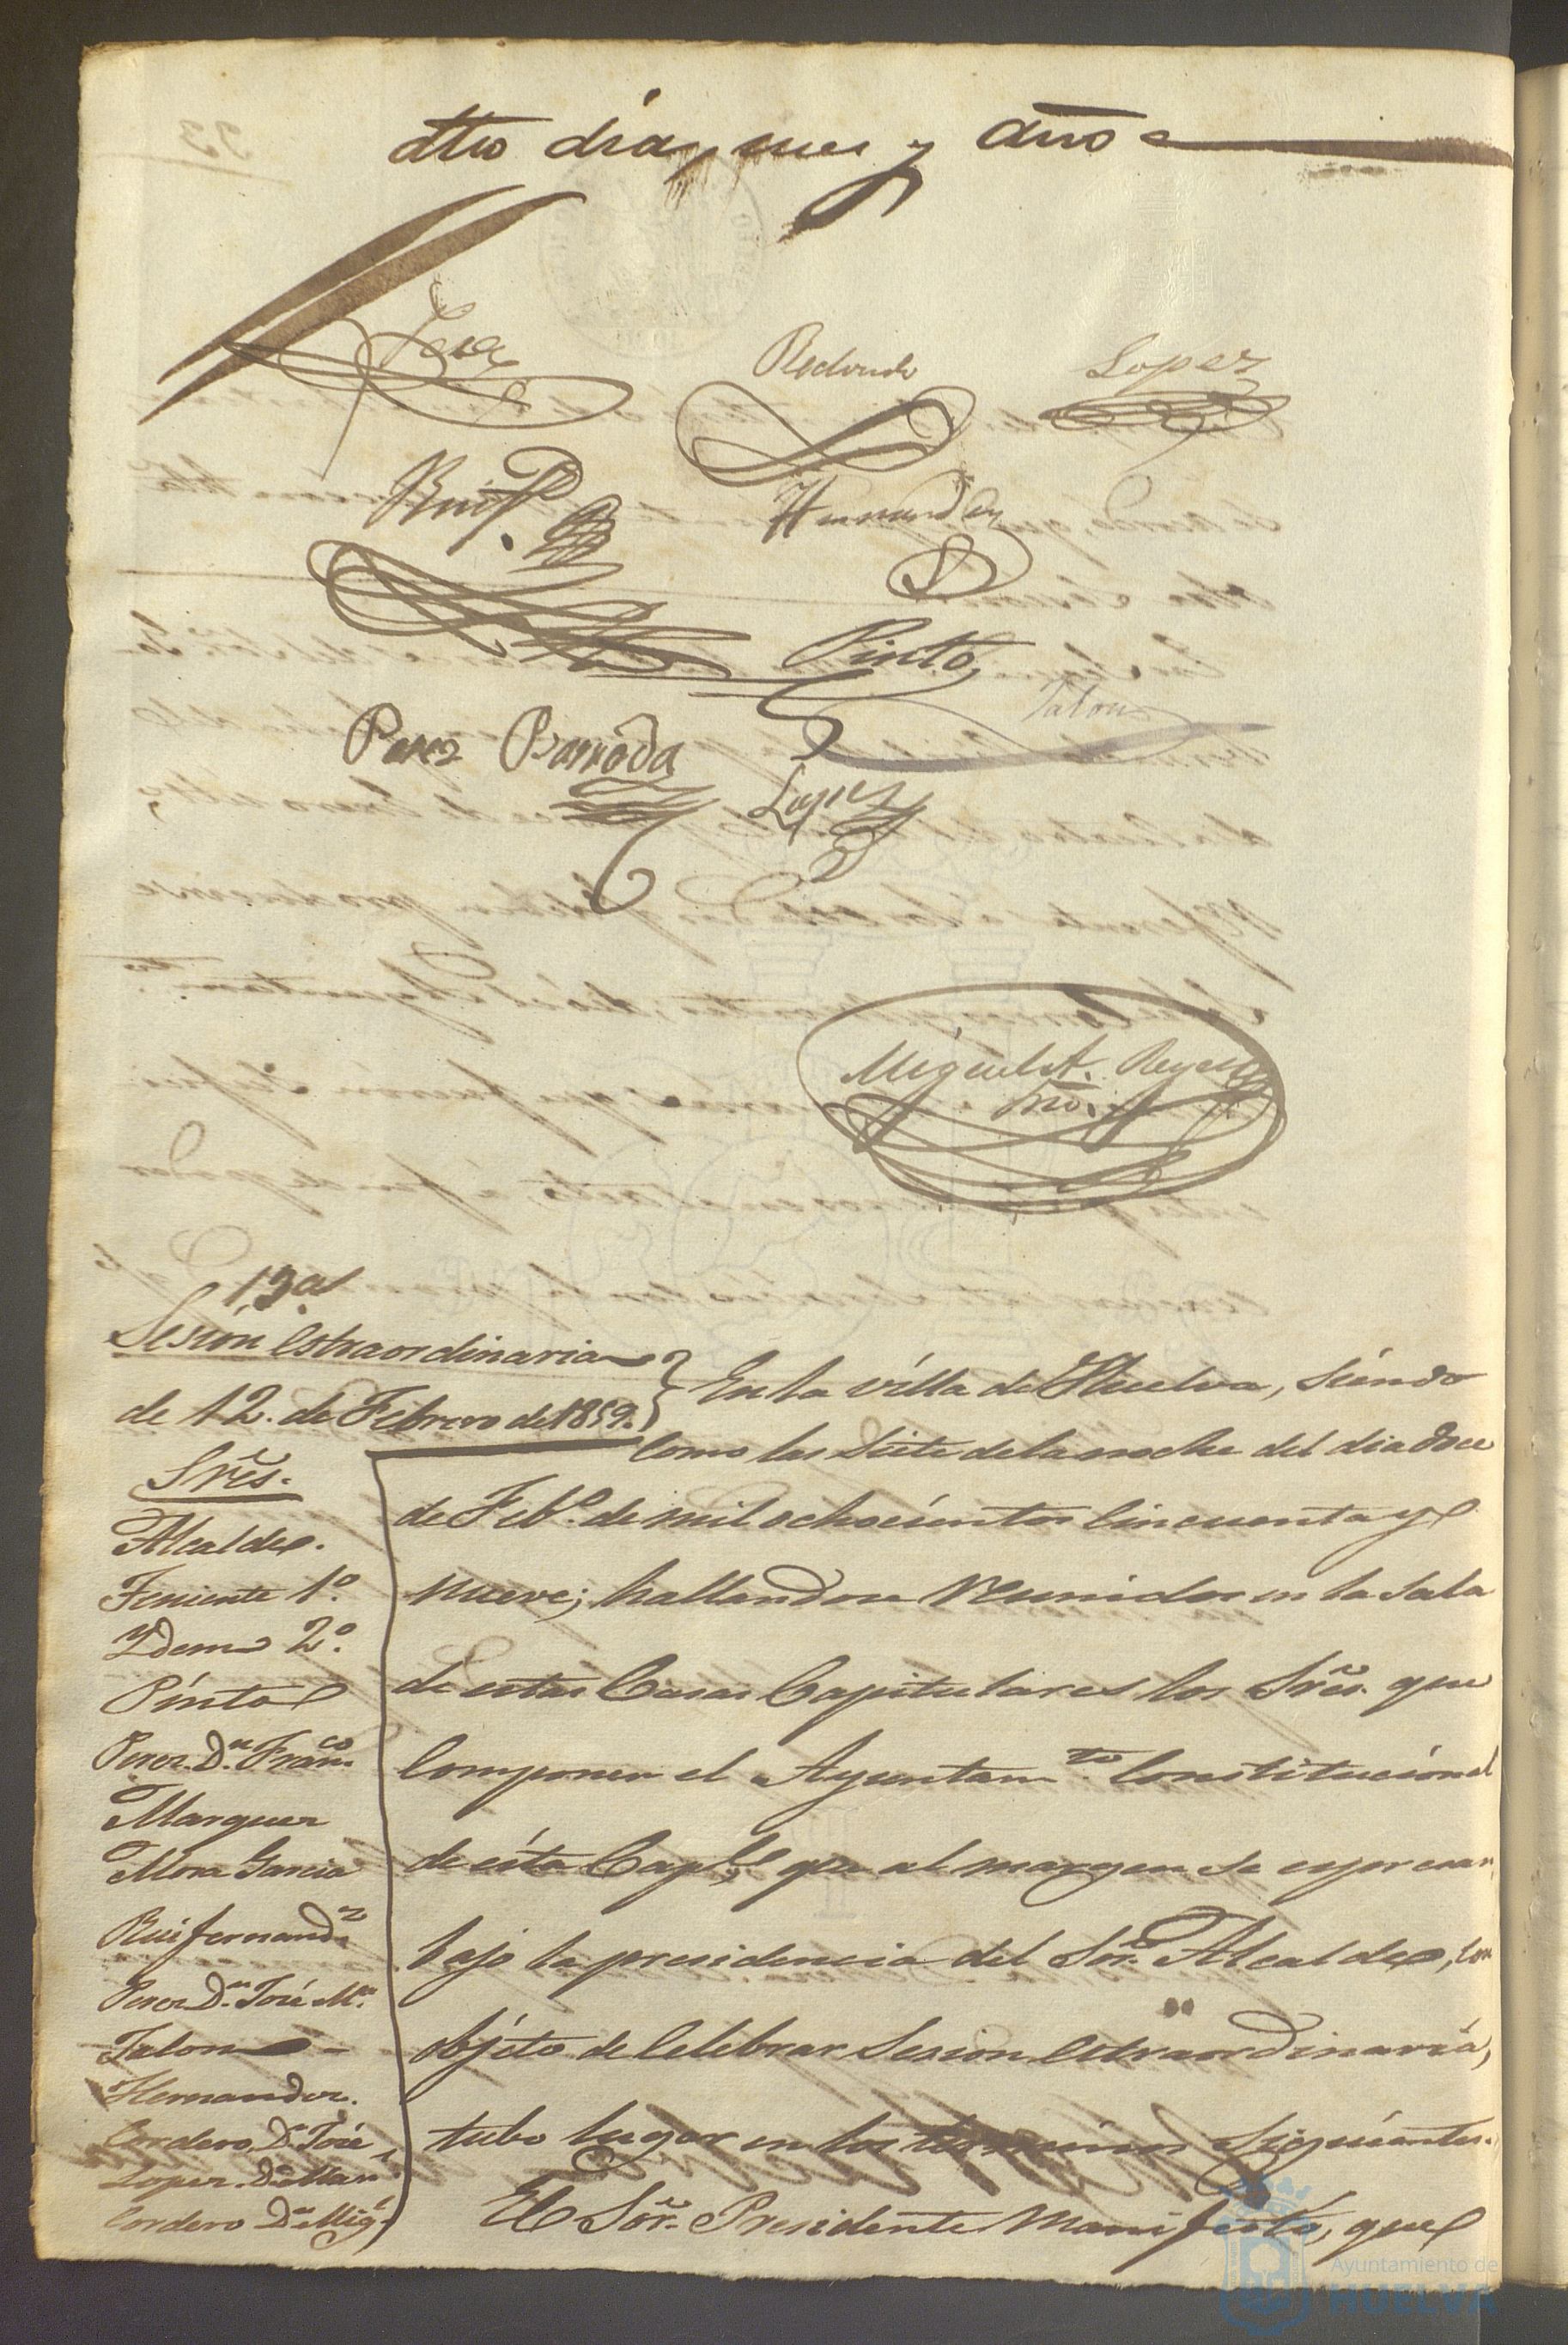 dho dia, mes y año
Redondo
Lopez
Ruiz
Hernandez
Pinto
Talon
Perez Barroda
Lopez
Miguel A. Reyes
Srio.
13ª
Sesion estraordinaria
de 12. de Febrero de 1859.
Sres.
Alcalde.
Teniente 1º.
Ydem 2º.
Pinto
Perez Dn. Franco.
Marquez
Mora Garcia
Ruifernandz
Perez Dn. José Mª.
Talon
Hernandez.
Cordero Dn José
Lopez Dn Manl.
Cordero Dn Migl.
En la villa de Huelva, siéndo
como las siete de la noche del dia doce
de Febº. de mil ochocientos cincuenta y
nueve; hallandose reunidos en la Sala
de estas Casas Capitulares los Sres. que
componen el Ayuntamto. Constitucional
de ésta Capl. que al margen se espresan
bajo la presidencia del Sor. Alcalde, con
objeto de celebrar Sesion estraordinaria,
tubo lugar en los terminos siguientes.
El Sor. Presidente manifestó, que
Ayuntamiento de
HUELVA